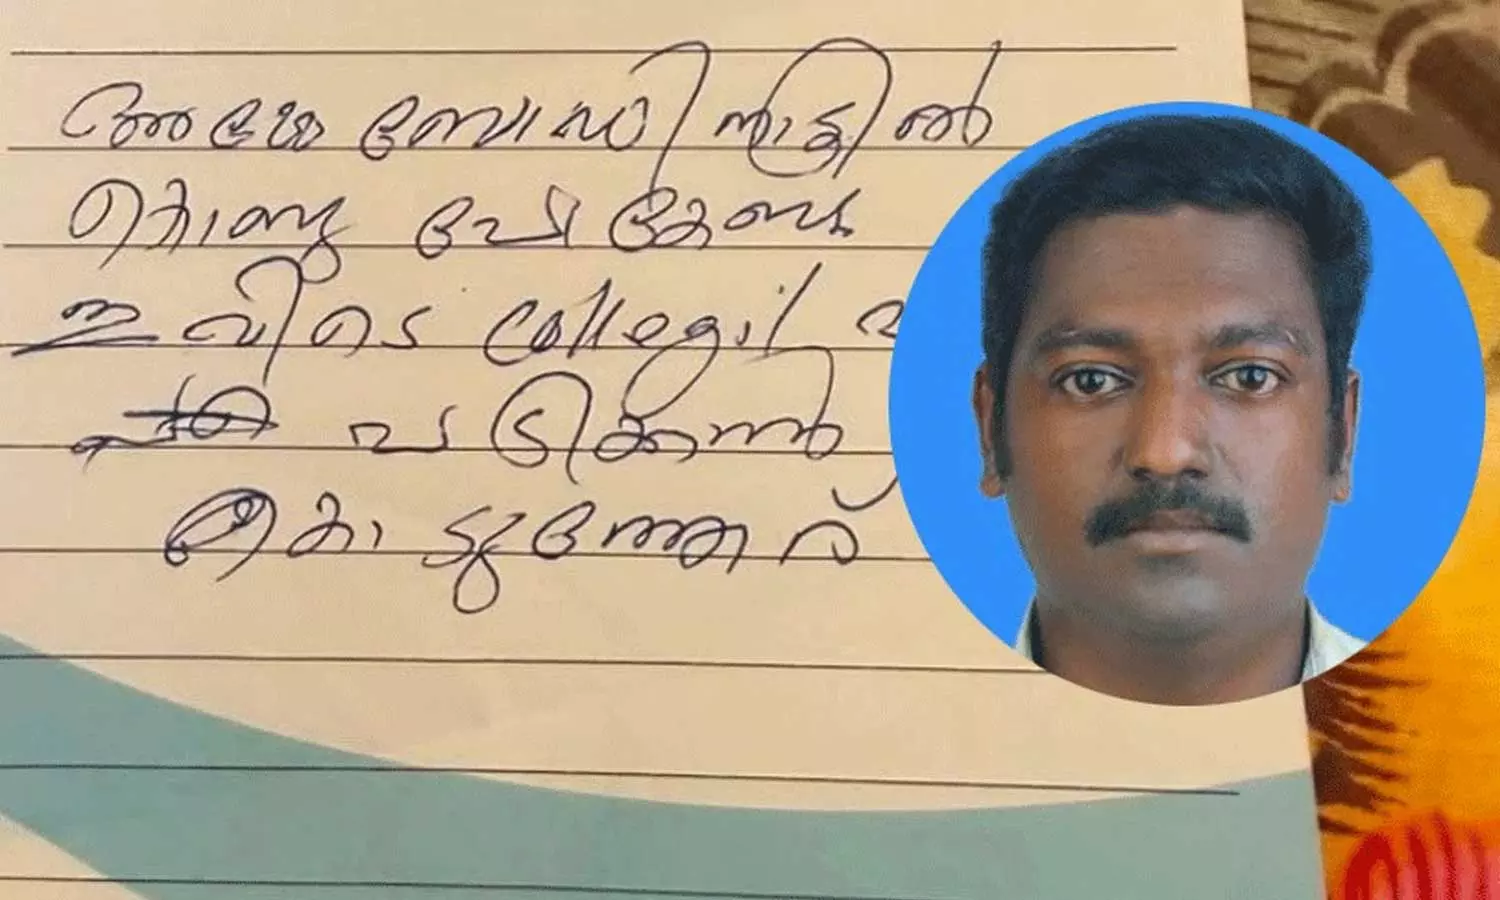 അമ്മേ ബോഡി നാട്ടിൽ
കൊണ്ടു പോകേണ്ട
ഇവിടെ Collegil
പഠിക്കാൻ
കൊടുത്തേര്